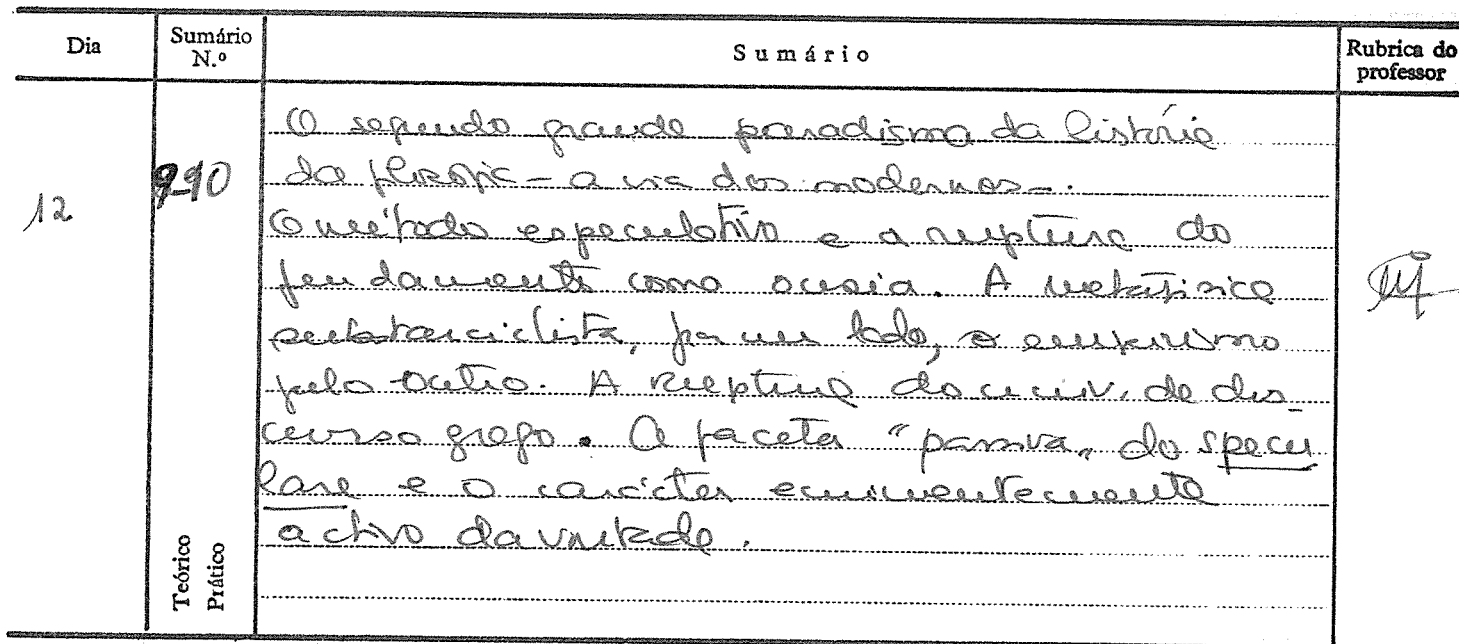 Dia
Sumário N.º
Sumário
Rubrica do professor
12
9-10
O segundo grande paradigma da história
da filosofia - a via dos modernos -.
O método especulativo e a ruptura do
fundamento como ousia. A metafísica
substancialista, por um lado, o empirismo
pelo outro. A ruptura do univ. de dis-
curso grego. A faceta "passiva" do specu
lare e o carácter eminentemente
activo da vontade.
Teórico
Prático